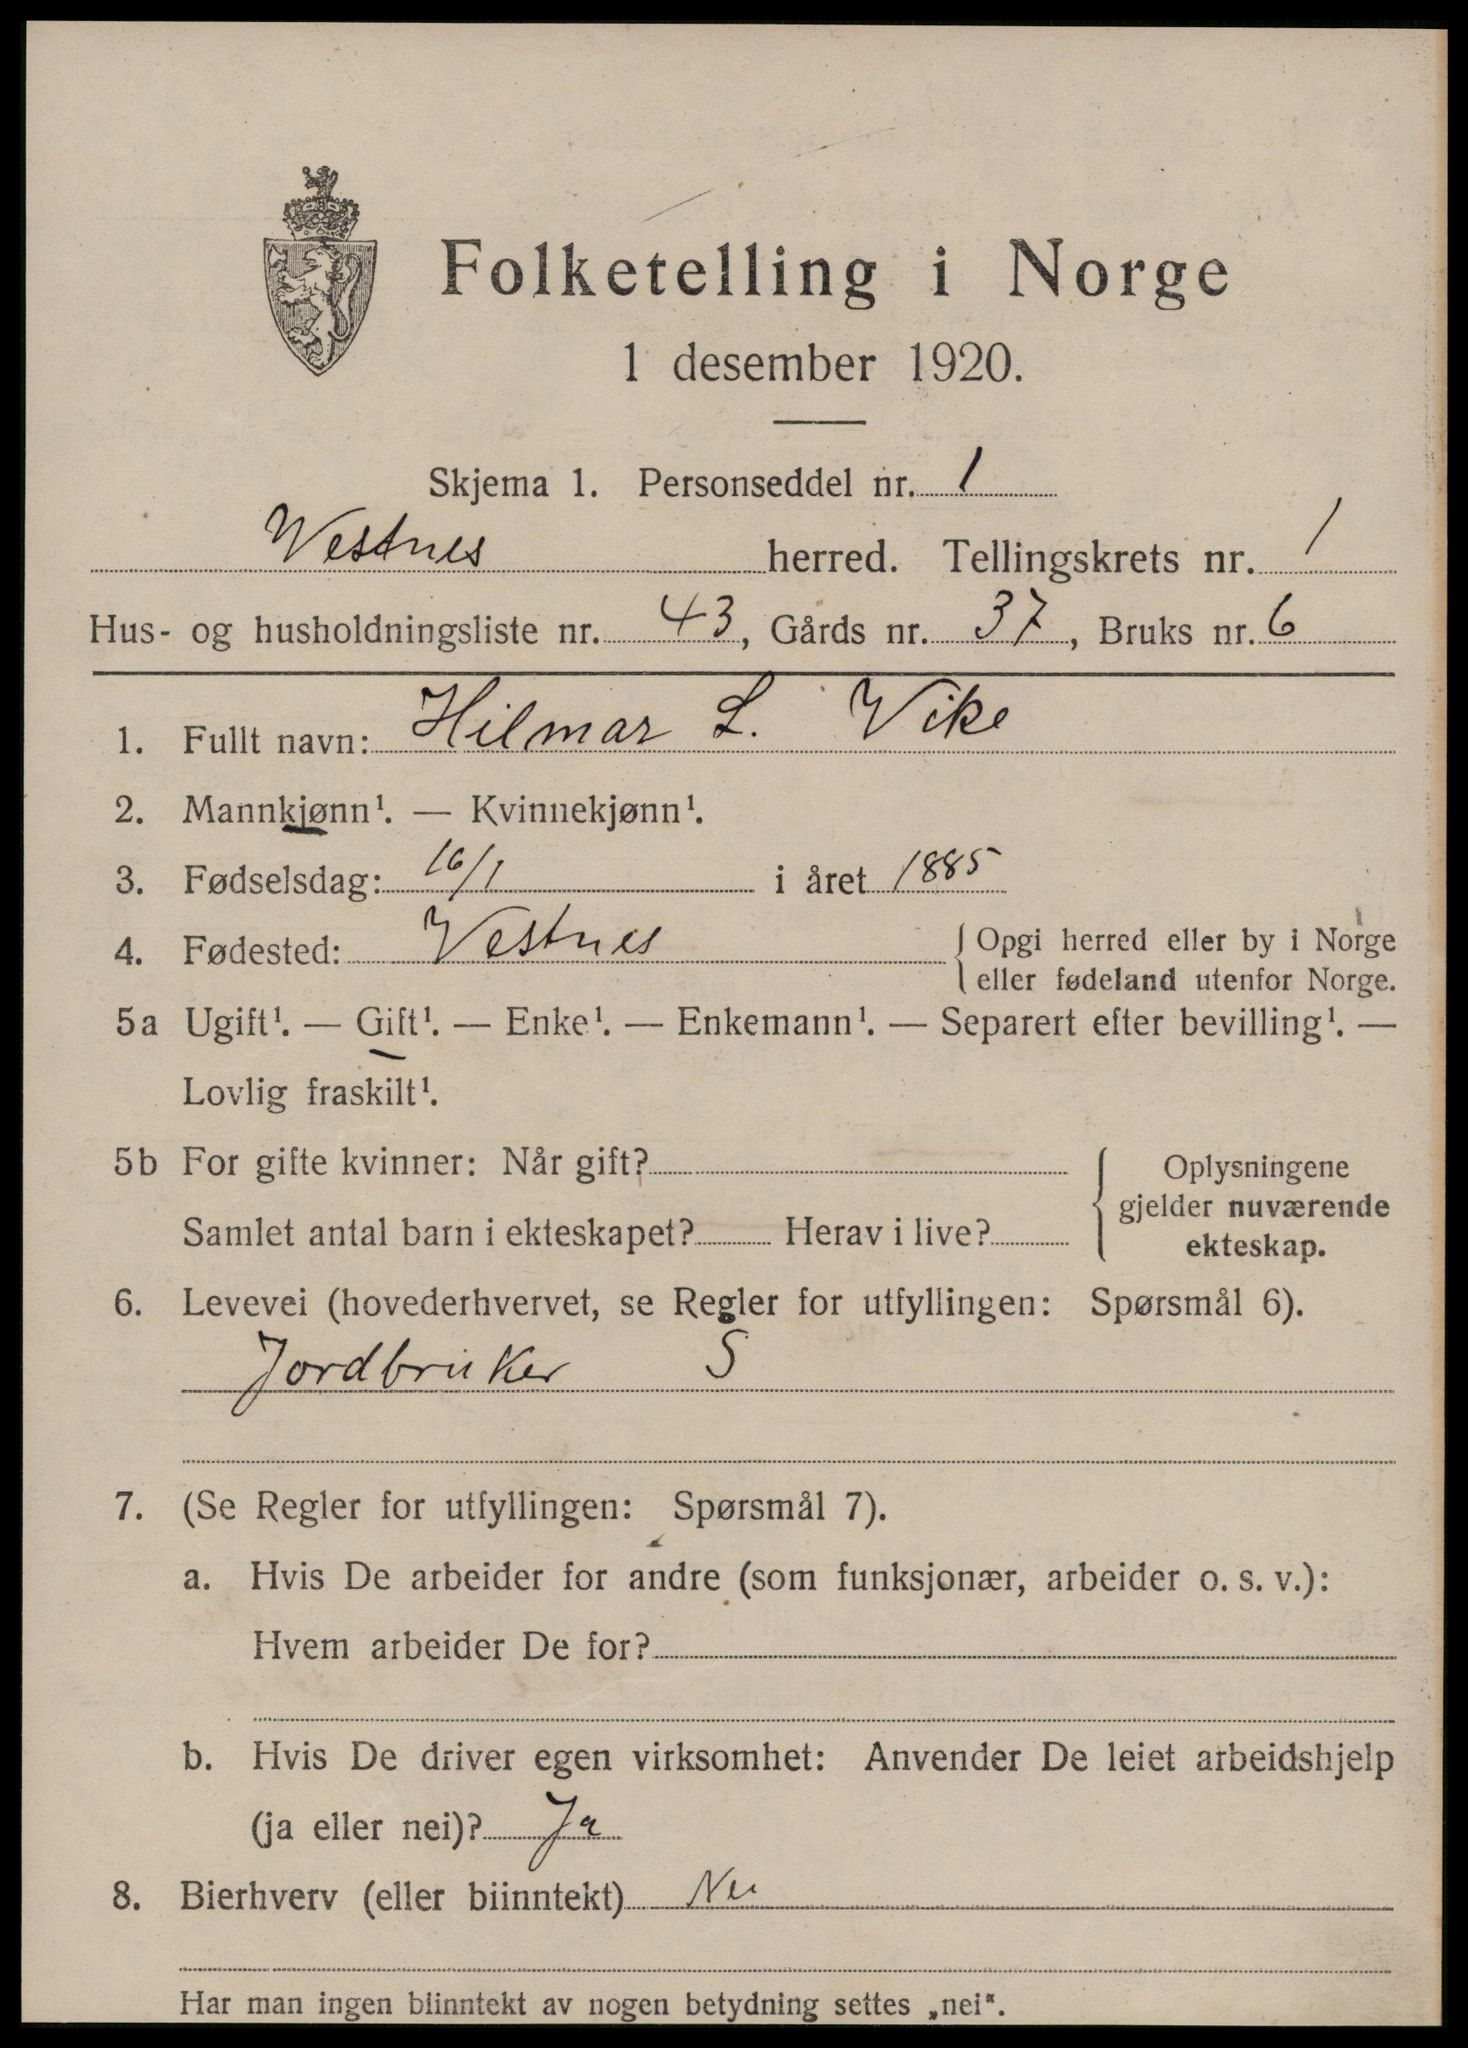 Folketelling i Norge
1 desember 1920.
Skjema 1. Personseddel nr. 1
Vestnes herred. Tellingskrets nr. 1
Hus- og husholdningsliste nr. 43, Gårds nr. 37, Bruks nr. 6
1. Fullt navn: Hilmar L. Vike
2. Mannkjønn¹. — Kvinnekjønn¹.
3. Fødselsdag: 16/1 i året 1885
4. Fødested: Vestnes { Opgi herred eller by i Norge
eller fødeland utenfor Norge.
5a Ugift¹. — Gift¹. — Enke¹. — Enkemann¹. — Separert efter bevilling¹. —
Lovlig fraskilt¹.
5b For gifte kvinner: Når gift?
Samlet antal barn i ekteskapet? Herav i live?
{ Oplysningene
gjelder nuværende
ekteskap.
6. Levevei (hovederhvervet, se Regler for utfyllingen: Spørsmål 6).
Jordbruker S
7. (Se Regler for utfyllingen: Spørsmål 7).
a. Hvis De arbeider for andre (som funksjonær, arbeider o. s. v.):
Hvem arbeider De for?
b. Hvis De driver egen virksomhet: Anvender De leiet arbeidshjelp
(ja eller nei)? Ja
8. Bierhverv (eller biinntekt) Nei
Har man ingen biinntekt av nogen betydning settes „nei“.